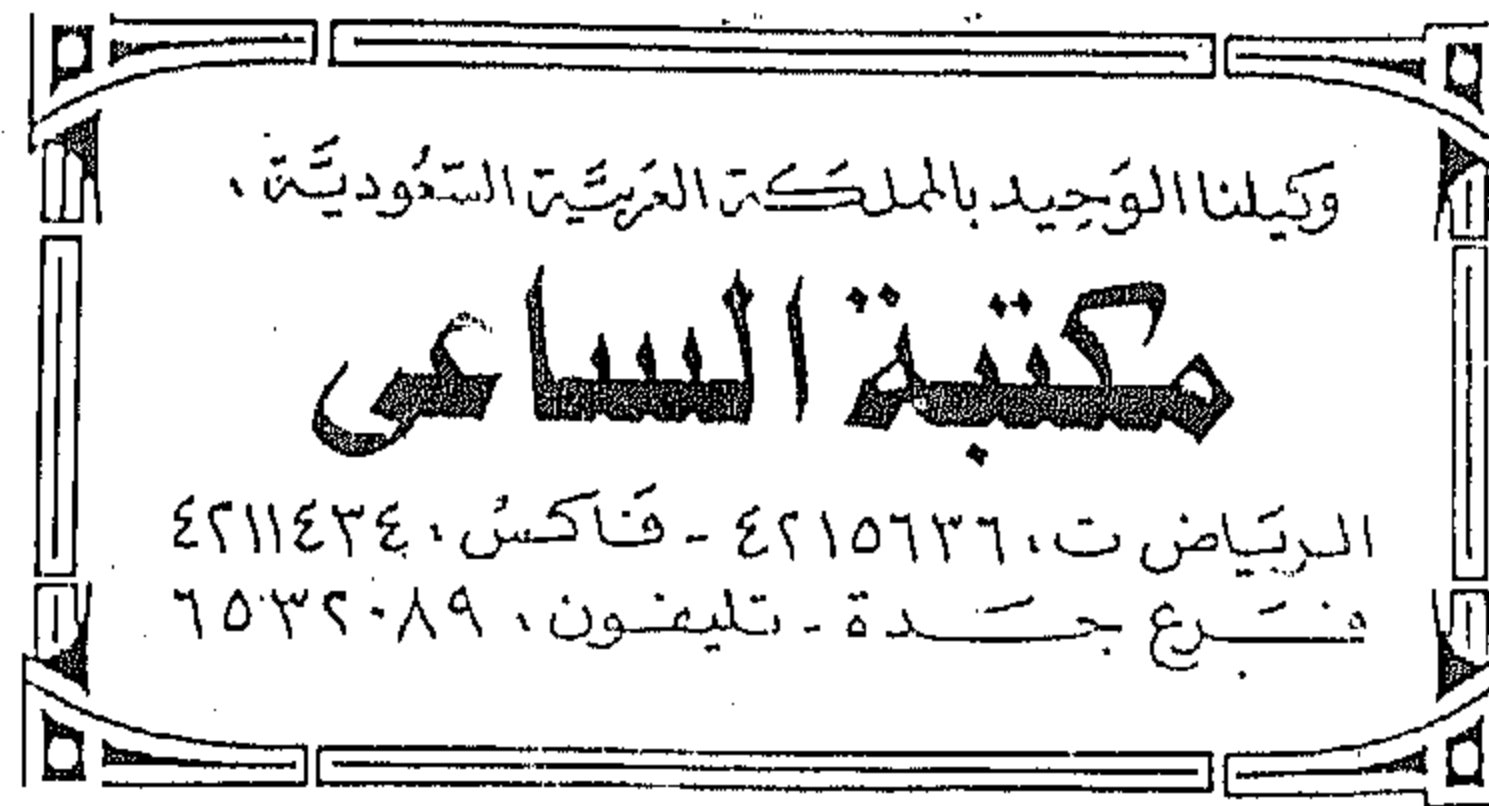 وَكيلنا الوَحِيد بالمملكَة العَربيَّة السّعُوديَّة،
مكتبة الساعى
الريَاض ت، ٤٢١٥٦٣٦ - فَاكسُ، ٤٢١١٤٣٤
فَرع جَدة - تليفون، ٦٥٣٢٠٨٩